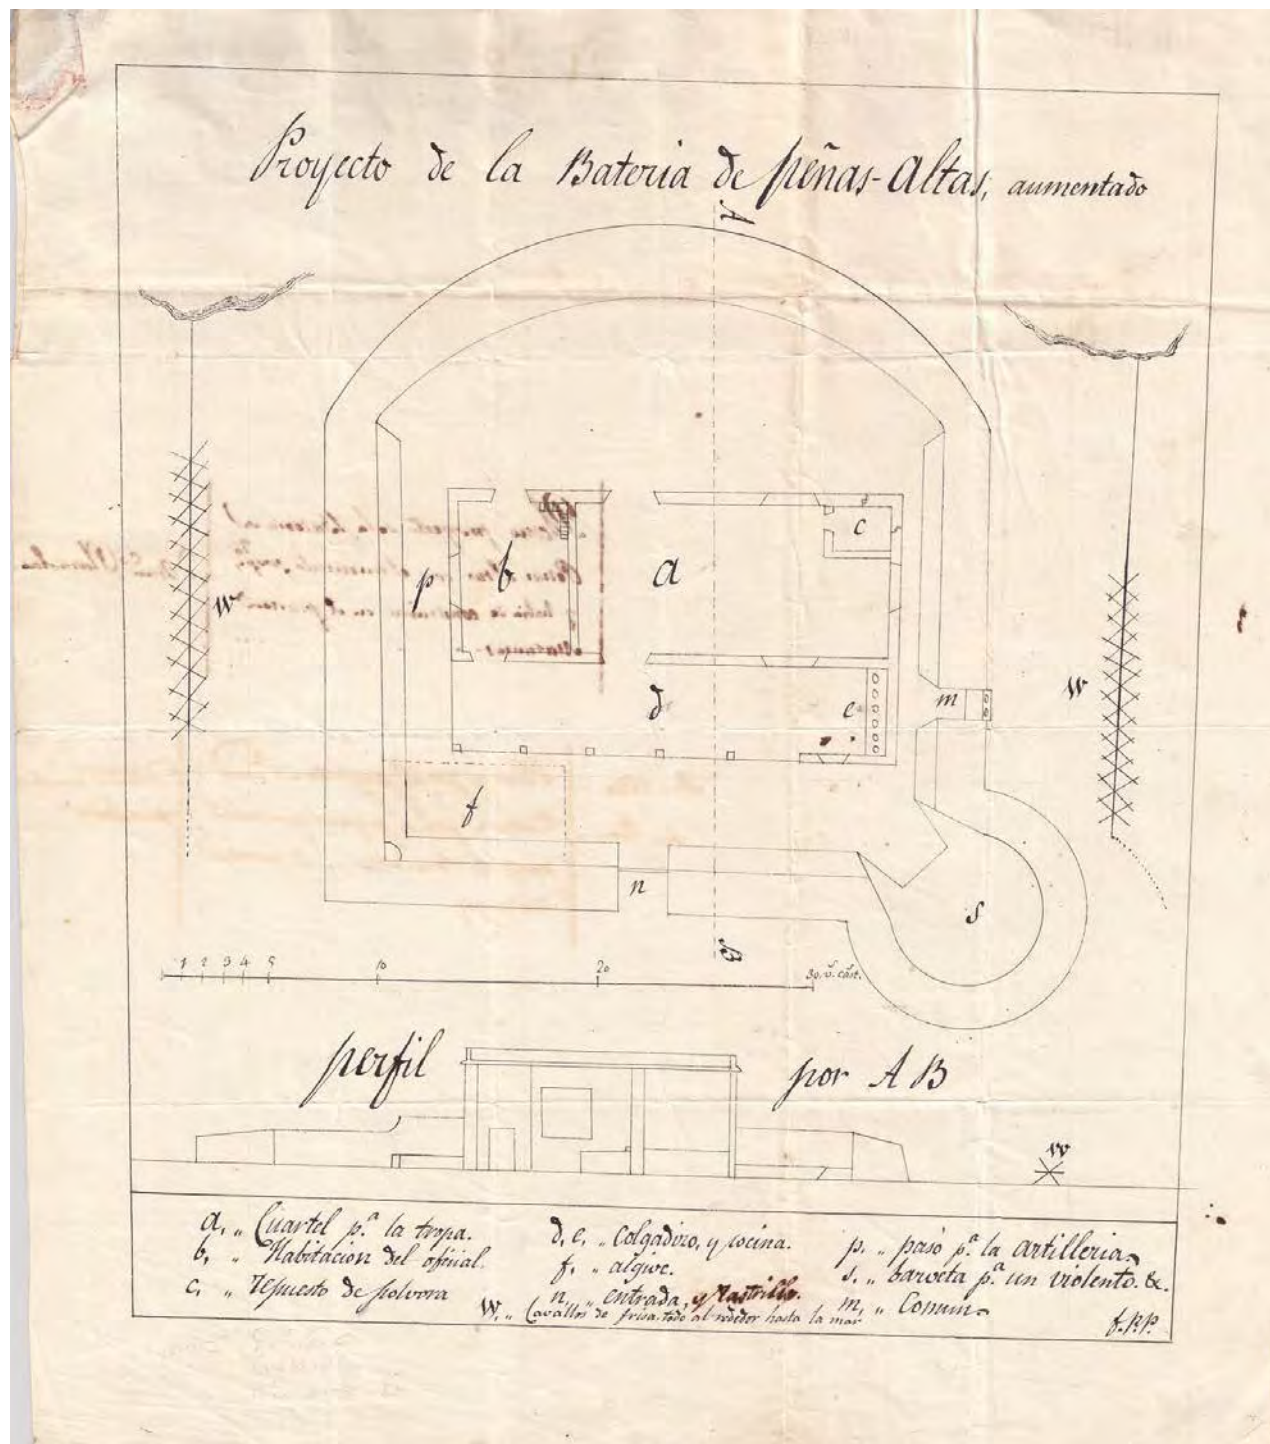 Proyecto de la Bateria de peñas-Altas, aumentado
A
b
a
c
p
W
d
e
m
W
f
n
s
B
1 2 3 4 5 10 20 30. v.s cast.
perfil por A B
W
a, „ Cuartel p.a la tropa.
b, „ Habitacion del oficial.
c, „ repuesto de polvora
d, e, „ Colgadizo, y cocina.
f, „ algive.
n, „ entrada, y Rastrillo.
W, „ Cavallos de frisa todo al rededor hasta la mar
p. „ paso p.a la artilleria.
s. „ barveta p.a un violento. &.
m, „ Comun.
f.P.P.